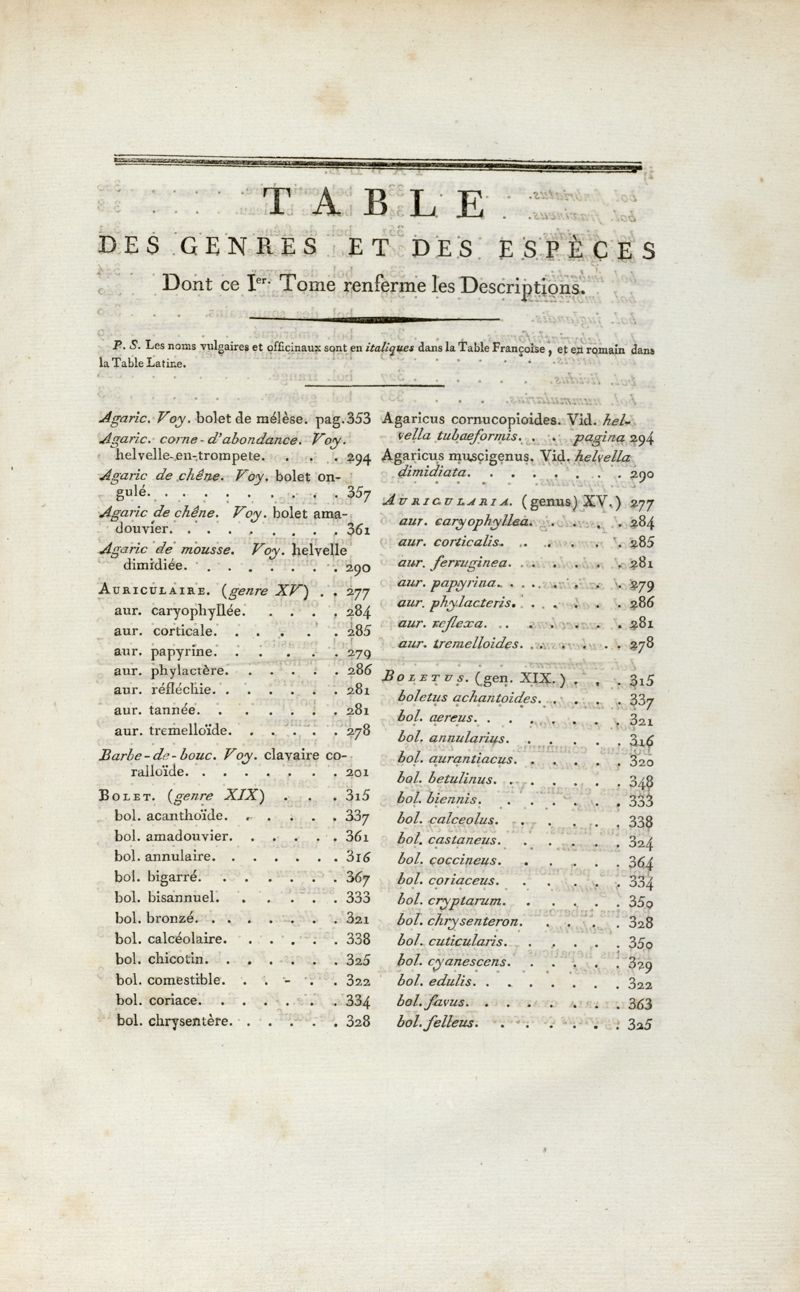 TABLE
DES GENRES ET DES ESPÈCES
Dont ce Ier. Tome renferme les Descriptions.
P. S. Les noms vulgaires et officinaux sont en italiques dans la Table Françoise, et en romain dans
la Table Latine.
Agaric. Voy. bolet de mélèse. pag. 353
Agaric. corne-d'abondance. Voy.
helvelle-en-trompete. . . . . 294
Agaric de chêne. Voy. bolet on-
gulé. . . . . . . . . . 357
Agaric de chêne. Voy. bolet ama-
douvier. . . . . . . . . 361
Agaric de mousse. Voy. helvelle
dimidiée. . . . . . . . . 290
AURICULAIRE. (genre XV) . . 277
aur. caryophyllée. . . . . 284
aur. corticale. . . . . . . 285
aur. papyrine. . . . . . . 279
aur. phylactère. . . . . . 286
aur. réfléchie. . . . . . . 281
aur. tannée. . . . . . . . 281
aur. tremelloïde. . . . . . 278
Barbe-de-bouc. Voy. clavaire co-
ralloïde. . . . . . . . 201
BOLET. (genre XIX) . . . 315
bol. acanthoïde. . . . . . 337
bol. amadouvier. . . . . . 361
bol. annulaire. . . . . . . 316
bol. bigarré. . . . . . . 367
bol. bisannuel. . . . . . 333
bol. bronzé. . . . . . . . 321
bol. calcéolaire. . . . . . 338
bol. chicotin. . . . . . . 325
bol. comestible. . . - . . 322
bol. coriace. . . . . . . 334
bol. chrysentère. . . . . . 328
Agaricus cornucopioides. Vid. hel-
vella tubaeformis. . . pagina 294
Agaricus muscigenus. Vid. helvella
dimidiata. . . . . . . . 290
AURICULARIA. (genus) XV.) 277
aur. caryophyllea. . . . . 284
aur. corticalis. . . . . . 285
aur. ferruginea. . . . . . 281
aur. papyrina. . . . . . . 279
aur. phylacteris. . . . . . 286
aur. reflexa. . . . . . . . 281
aur. tremelloides. . . . . . 278
BOLETUS. (gen. XIX.) . . . 315
boletus achantoides. . . . . 337
bol. aereus. . . . . . . . 321
bol. annularius. . . . . . 316
bol. aurantiacus. . . . . . 320
bol. betulinus. . . . . . . 348
bol. biennis. . . . . . . 333
bol. calceolus. . . . . . . 338
bol. castaneus. . . . . . 324
bol. coccineus. . . . . . 364
bol. coriaceus. . . . . . 334
bol. cryptarum. . . . . . 350
bol. chrysenteron. . . . . 328
bol. cuticularis. . . . . . 350
bol. cyanescens. . . . . . 329
bol. edulis. . . . . . . . 322
bol. favus. . . . . . . . 363
bol. felleus. . . . . . . 325